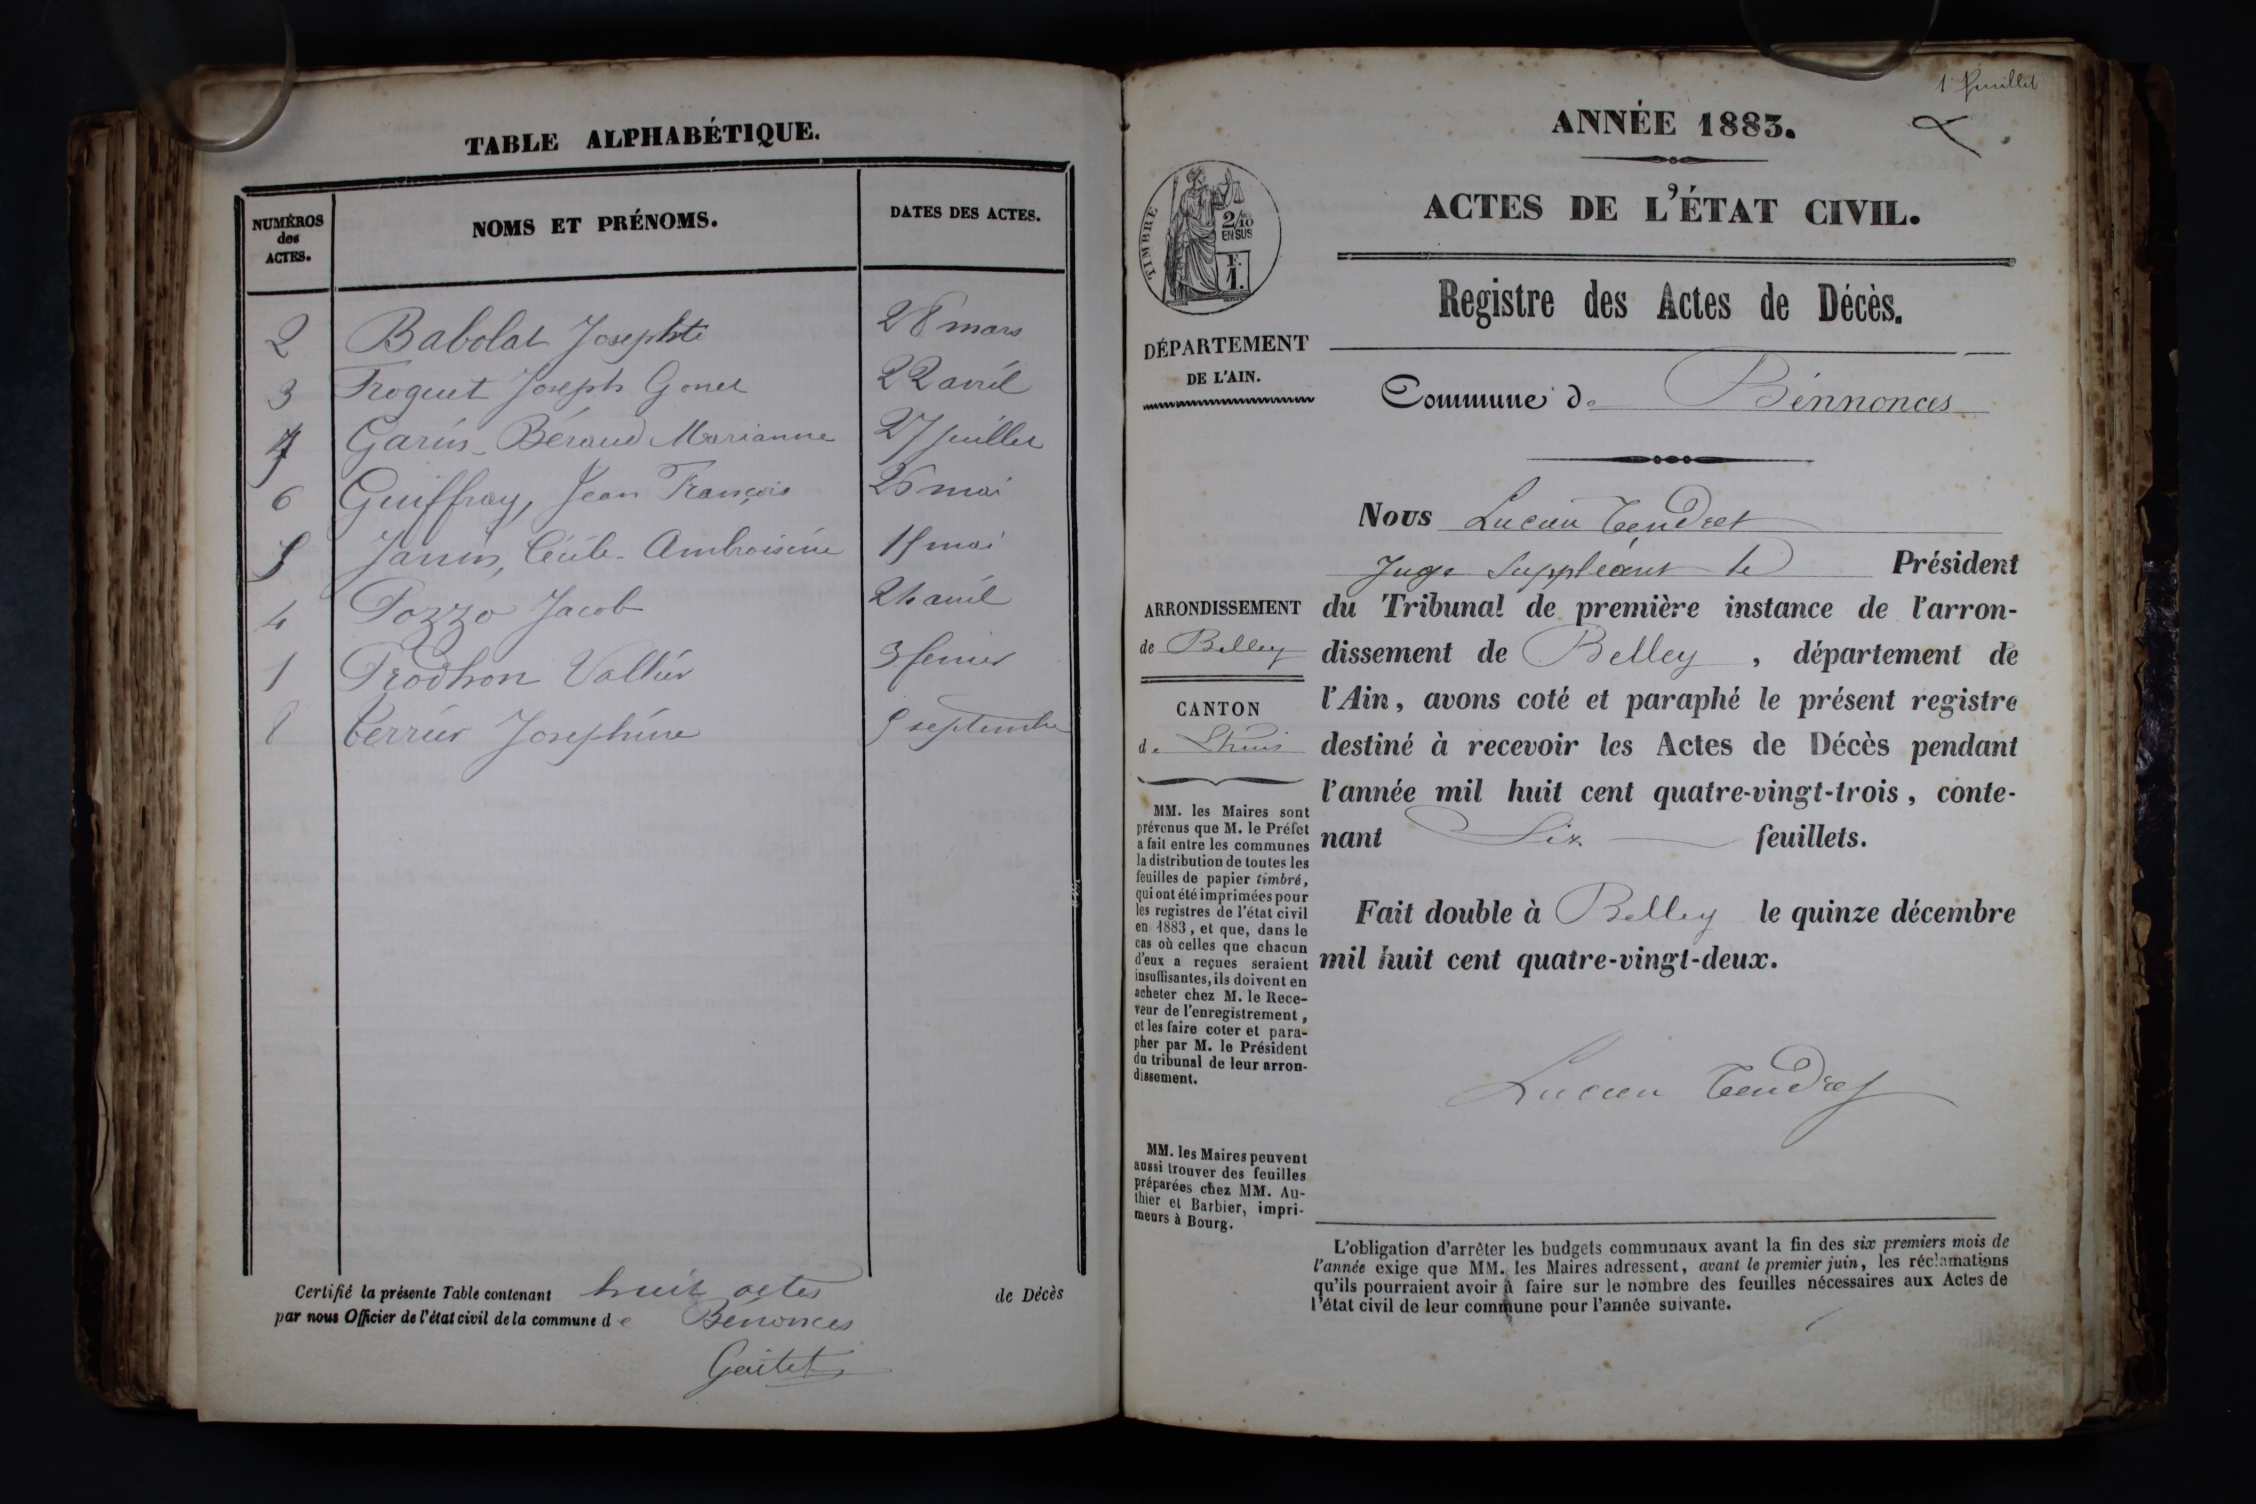 TABLE ALPHABÉTIQUE.
NUMÉROS
des
ACTES.
NOMS ET PRÉNOMS.
DATES DES ACTES.
2 Babolat Josephte 28 mars
3 Froquet Joseph Gonet 22 avril
7 Garin-Béraud Marianne 27 juillet
6 Guiffray, Jean François 26 mai
5 Janin, Cécile-Ambroisine 15 mai
4 Pozzo Jacob 24 avril
1 Prodhon Valtier 3 février
8 Terrier Josephine septembre
Certifié la présente Table contenant huit actes de Décès
par nous Officier de l'état civil de la commune de Bénonces
Gaitet
1er feuillet
ANNÉE 1883.
ACTES DE L'ÉTAT CIVIL.
Registre des Actes de Décès.
TIMBRE
2/10
EN SUS
F.
1.
DÉPARTEMENT
DE L'AIN.
Commune de Bénnonces
Nous Lucien Tendret
Juge Suppléant le Président
du Tribunal de première instance de l'arron-
dissement de Belley, département de
l'Ain, avons coté et paraphé le présent registre
destiné à recevoir les Actes de Décès pendant
l'année mil huit cent quatre-vingt-trois, conte-
nant Six feuillets.
Fait double à Belley le quinze décembre
mil huit cent quatre-vingt-deux.
Lucien Tendret
ARRONDISSEMENT
de Belley
CANTON
de Lhuis
MM. les Maires sont
prévenus que M. le Préfet
a fait entre les communes
la distribution de toutes les
feuilles de papier timbré,
qui ont été imprimées pour
les registres de l'état civil
en 1883, et que, dans le
cas où celles que chacun
d'eux a reçues seraient
insuffisantes, ils doivent en
acheter chez M. le Rece-
veur de l'enregistrement,
et les faire coter et para-
pher par M. le Président
du tribunal de leur arron-
dissement.
MM. les Maires peuvent
aussi trouver des feuilles
préparées chez MM. Au-
thier et Barbier, impri-
meurs à Bourg.
L'obligation d'arrêter les budgets communaux avant la fin des six premiers mois de
l'année exige que MM. les Maires adressent, avant le premier juin, les réclamations
qu'ils pourraient avoir à faire sur le nombre des feuilles nécessaires aux Actes de
l'état civil de leur commune pour l'année suivante.